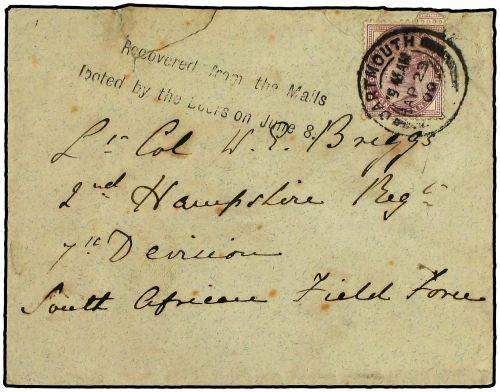 Recovered from the Mails
looted by the Boers on June 8.
DARTMOUTH
AP 24
00
Lt Col W. E. Briggs
2nd Hampshire Regt
7th Devision
South African Field Force